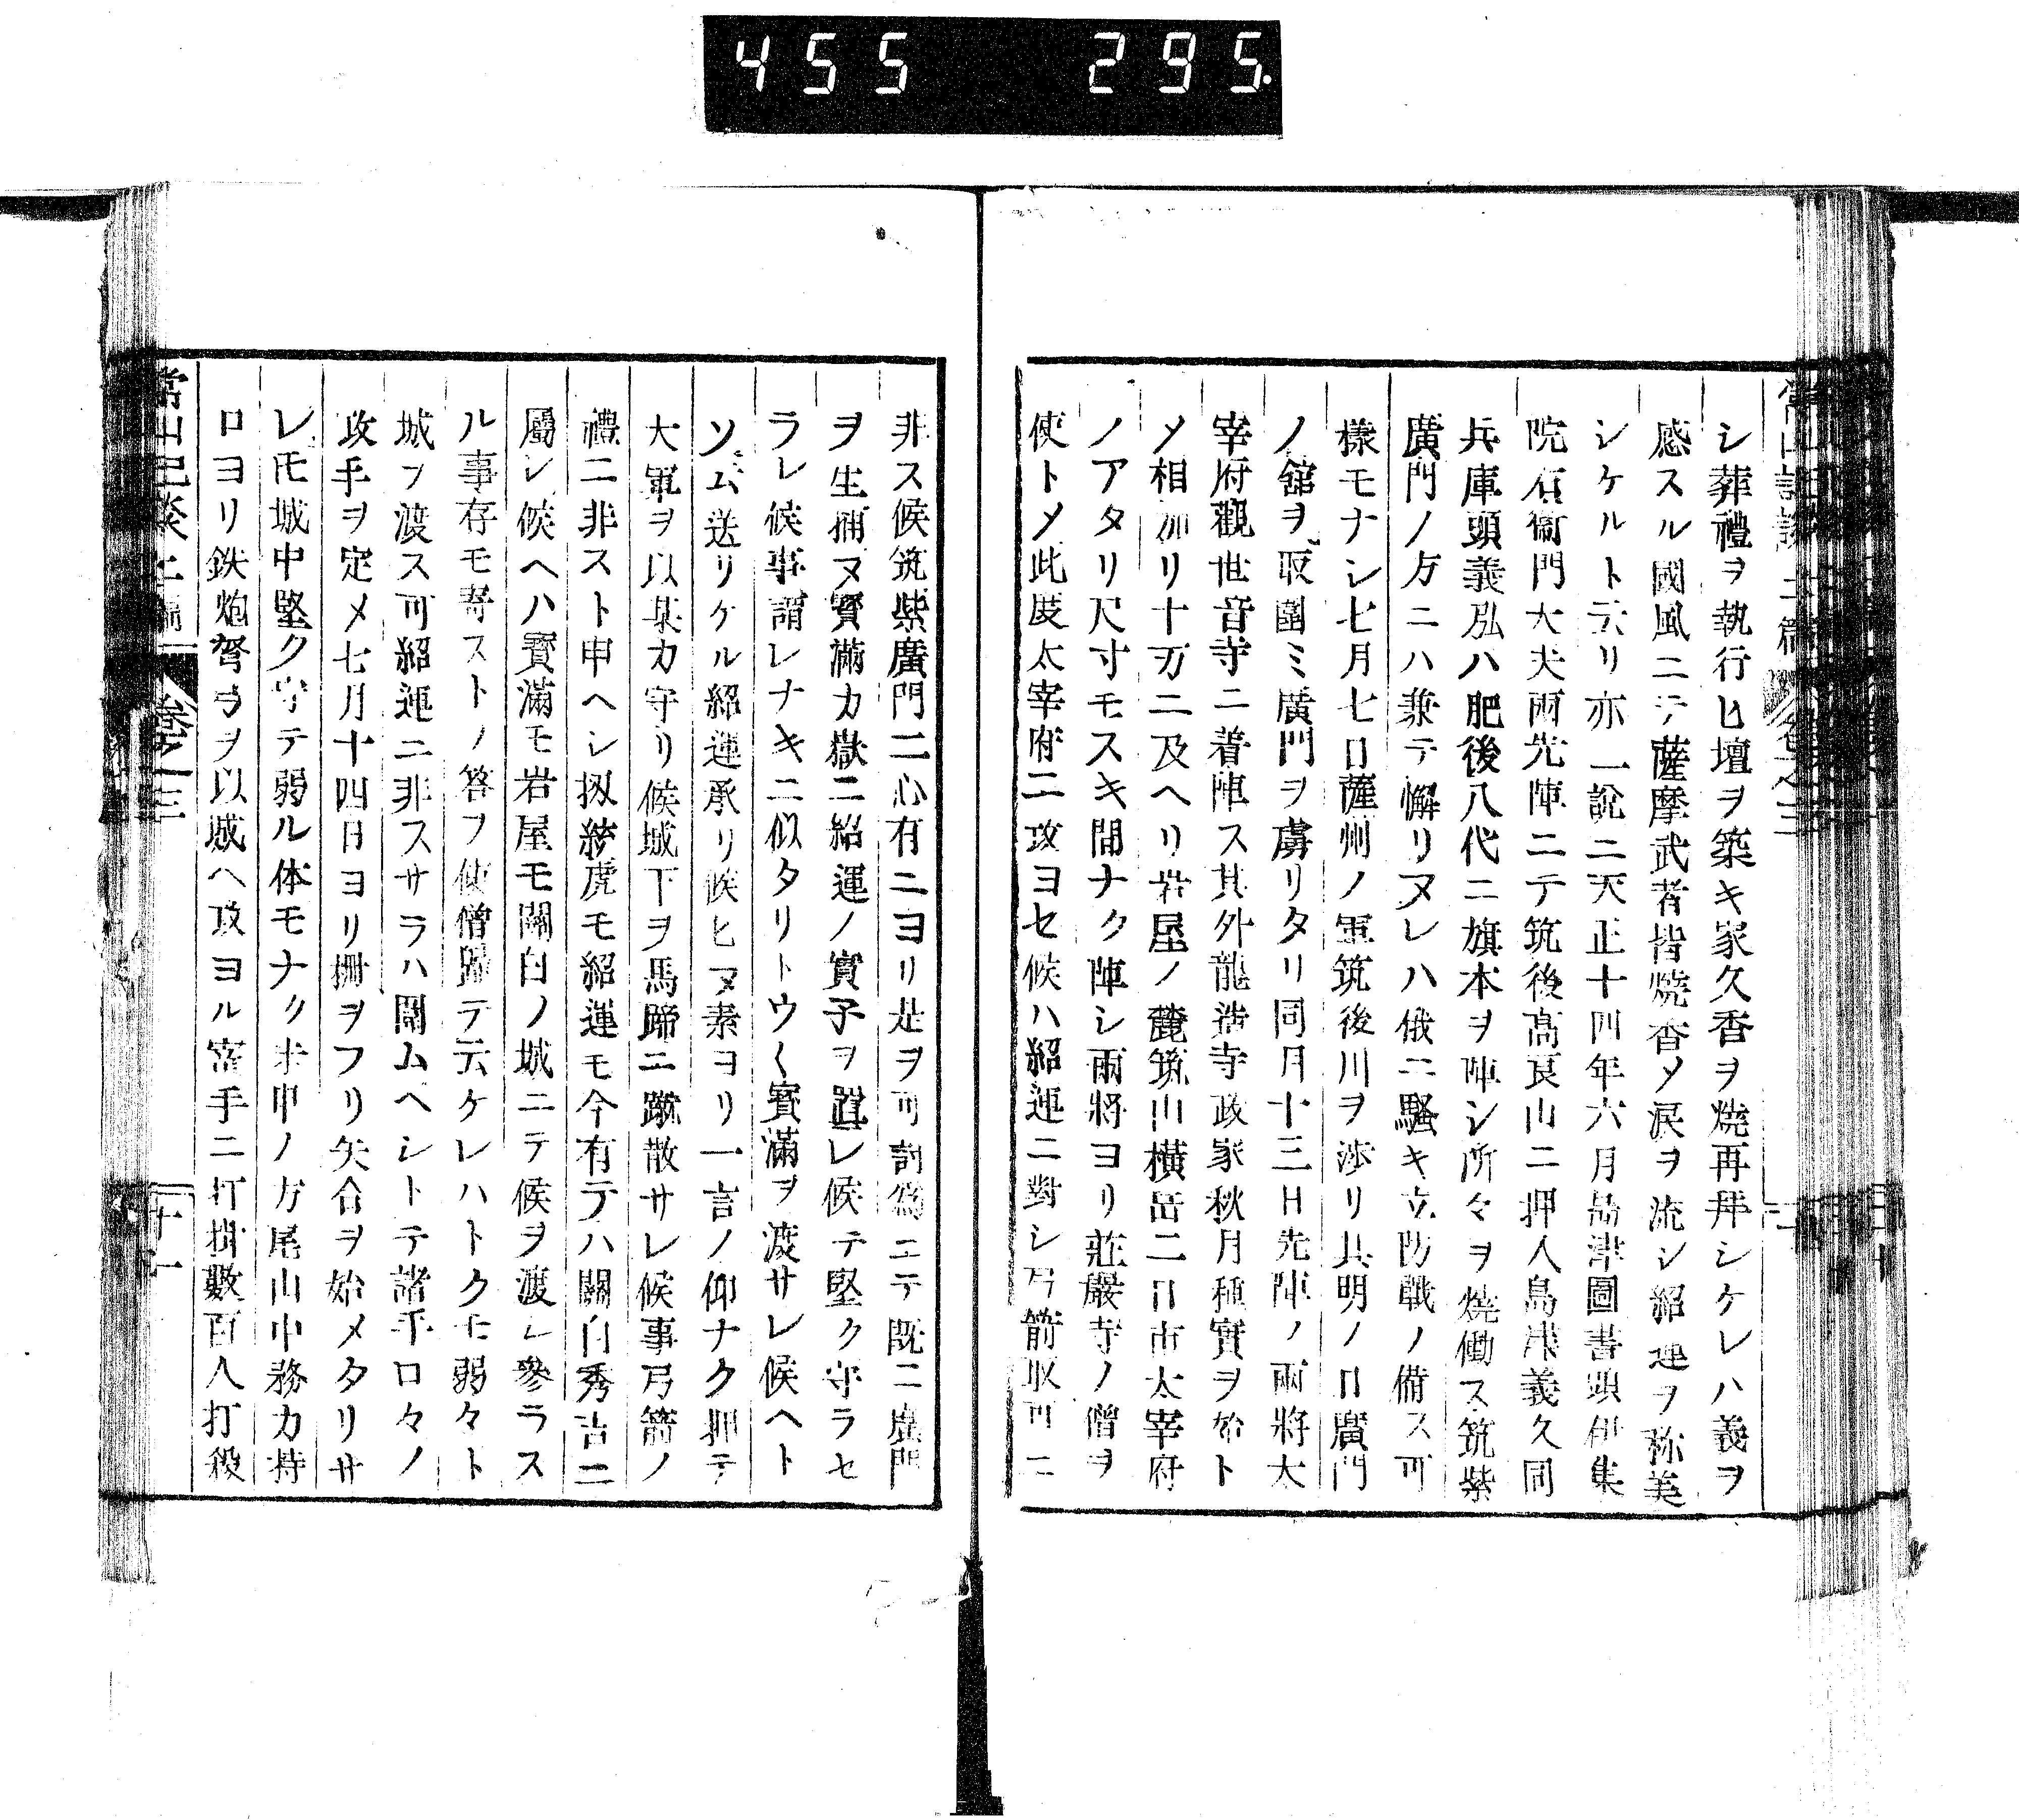 455 295.
シ葬禮ヲ執行ヒ壇ヲ築キ家久香ヲ焼再拜シケレハ義ヲ
感スル國風ニテ薩摩武者皆焼香メ涙ヲ流シ紹運ヲ称美
シケルト云リ亦一說ニ天正十四年六月島津圖書頭伊集
院右衞門大夫兩先陣ニテ筑後髙良山ニ押入島津義久同
兵庫頭義弘ハ肥後八代ニ旗本ヲ陣シ所々ヲ焼働ス筑紫
廣門ノ方ニハ兼テ懈リヌレハ俄ニ騷キ立防戰ノ備ス可
樣モナシ七月七日薩州ノ軍筑後川ヲ渉リ其明ノ日廣門
ノ舘ヲ取圍ミ廣門ヲ虜リタリ同月十三日先陣ノ兩將太
宰府觀世音寺ニ着陣ス其外龍造寺政家秋月種實ヲ始ト
メ相加リ十万ニ及ヘリ岩屋ノ麓筑山横岳二日市太宰府
ノアタリ尺寸モスキ間ナク陣シ兩將ヨリ莊嚴寺ノ僧ヲ
使トメ此度太宰府ニ攻ヨセ候ハ紹運ニ對シ弓箭取可ニ
非ス候筑紫廣門二心有ニヨリ是ヲ可討爲ニテ既ニ廣門
ヲ生捕ヌ寳滿カ嶽ニ紹運ノ實子ヲ置レ候テ堅ク守ラセ
ラレ候事謂レナキニ似タリトウ〱寳滿ヲ渡サレ候ヘト
ソ云送リケル紹運承リ候ヒヌ素ヨリ一言ノ仰ナク押テ
大軍ヲ以某カ守リ候城下ヲ馬蹄ニ蹴散サレ候事弓箭ノ
禮ニ非スト申ヘシ扨統虎モ紹運モ今有テハ關白秀吉ニ
屬レ候ヘハ寳滿モ岩屋モ關白ノ城ニテ候ヲ渡レ參ラス
ル事存モ寄ストノ答フ使僧歸テ云ケレハトクモ弱々ト
城ヲ渡ス可紹運ニ非スサラハ鬪ムヘシトテ諸手口々ノ
攻手ヲ定メ七月十四日ヨリ柵ヲフリ矢合ヲ始メタリサ
レ𪜈城中堅ク守テ弱ル体モナク未申ノ方尾山中務カ持
口ヨリ鉄炮弩ヲヲ以城ヘ攻ヨル寄手ニ打掛數百人打殺
常山紀談 卷之三 十一